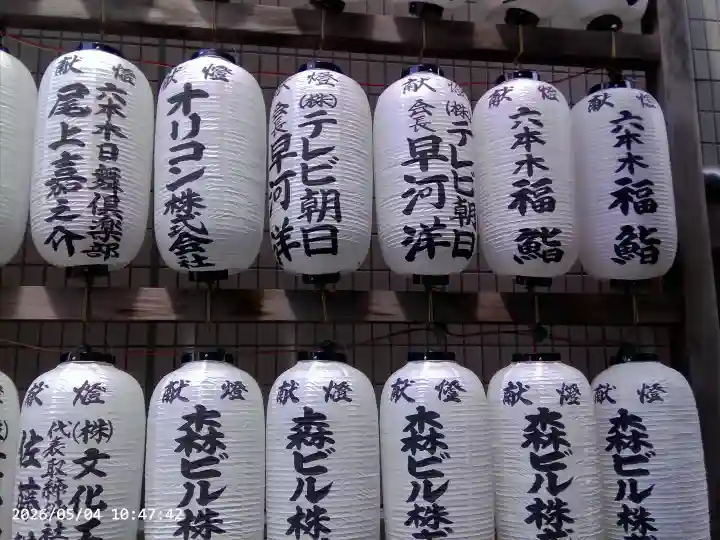 献燈
六本木日舞倶楽部
尾上嘉之介
献燈
オリコン株式会社
献燈
(株)テレビ朝日
会長
早河洋
献燈
(株)テレビ朝日
会長
早河洋
献燈
六本木
福鮨
献燈
六本木
福鮨
献燈
(株)文化
代表取締役社
佐藤
献燈
森ビル株
献燈
森ビル株
献燈
森ビル株
献燈
森ビル株
献燈
森ビル株
2026/05/04 10:47:42